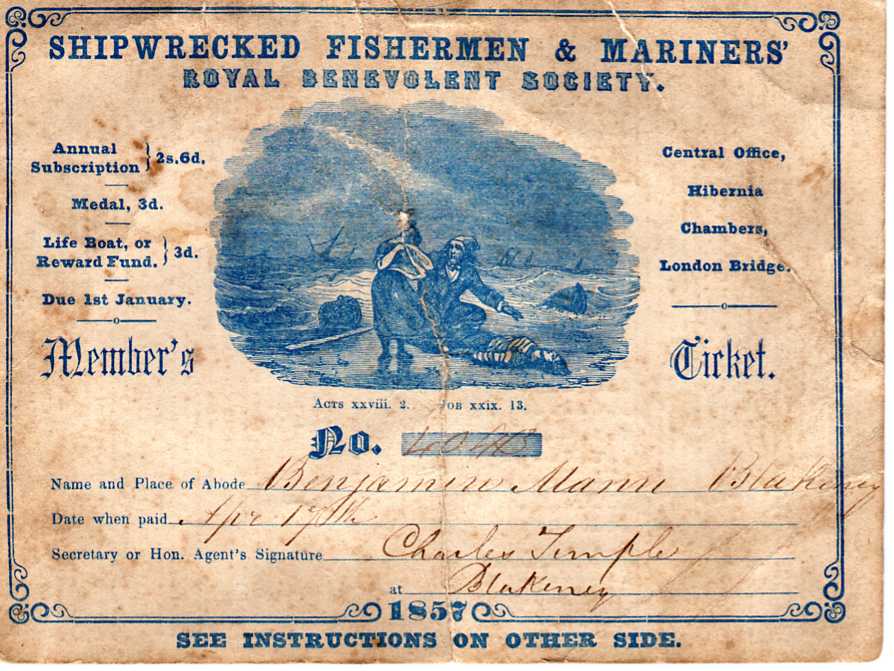 SHIPWRECKED FISHERMEN & MARINERS'
ROYAL BENEVOLENT SOCIETY.
Annual Subscription } 2s. 6d.
Medal, 3d.
Life Boat, or Reward Fund. } 3d.
Due 1st January.
Central Office,
Hibernia
Chambers,
London Bridge.
Member's Ticket.
Acts xxviii. 2. Job xxix. 13.
No.
Name and Place of Abode Benjamin Mann Blakeney
Date when paid Apr 17th
Secretary or Hon. Agent's Signature Charles Temple
at Blakeney
1857
SEE INSTRUCTIONS ON OTHER SIDE.